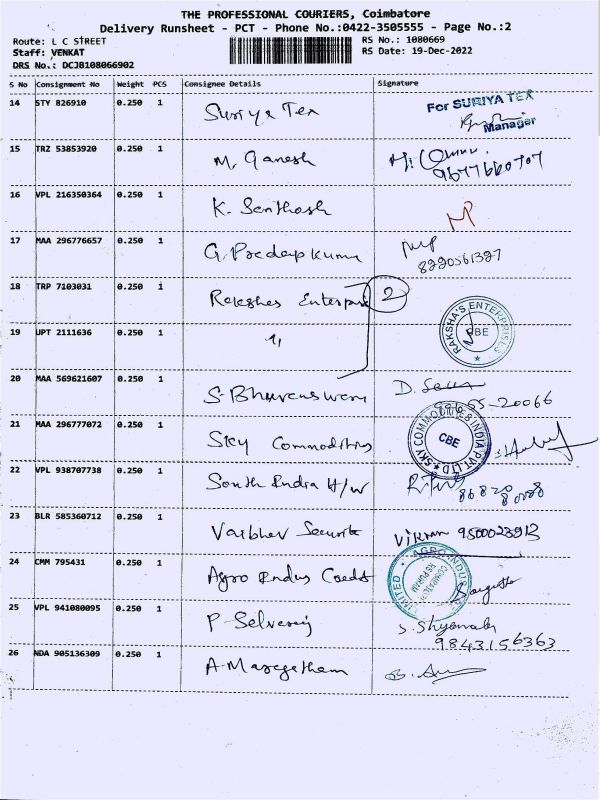 THE PROFESSIONAL COURIERS, Coimbatore
Delivery Runsheet - PCT - Phone No.:0422-3505555 - Page No.:2
Route: L C STREET RS No.: 1080669
Staff: VENKAT RS Date: 19-Dec-2022
DRS No.: DCJB108066902
S No Consignment No Weight PCS Consignee Details Signature
14 STY 826910 0.250 1 Suriya Tex For SURIYA TEX
Manager
15 TRZ 53853920 0.250 1 M. Ganesh
9677660707
16 VPL 216350364 0.250 1 K. Santhosh
17 MAA 296776657 0.250 1 G. Predeep kuma
8220561327
18 TRP 7103031 0.250 1 Rakshas Enterprise 2
RAKSHA'S ENTERPRISES CBE
19 UPT 2111636 0.250 1 "
20 MAA 569621607 0.250 1 S. Bhuvaneswari D.
55-20066
21 MAA 296777072 0.250 1 Sky Commodities SKY COMMODITIES INDIA PVT LTD CBE
22 VPL 938707738 0.250 1 South India H/w
23 BLR 585360712 0.250 1 Vaibhav Securit Vikram 9500023913
24 CMM 795431 0.250 1 Agro Indus Credit AGRO INDUS LIMITED
COIMBATORE RS PURAM
25 VPL 941080095 0.250 1 P. Selvaraj S. Shyamala
9843156363
26 NDA 905136309 0.250 1 A. Maragatham